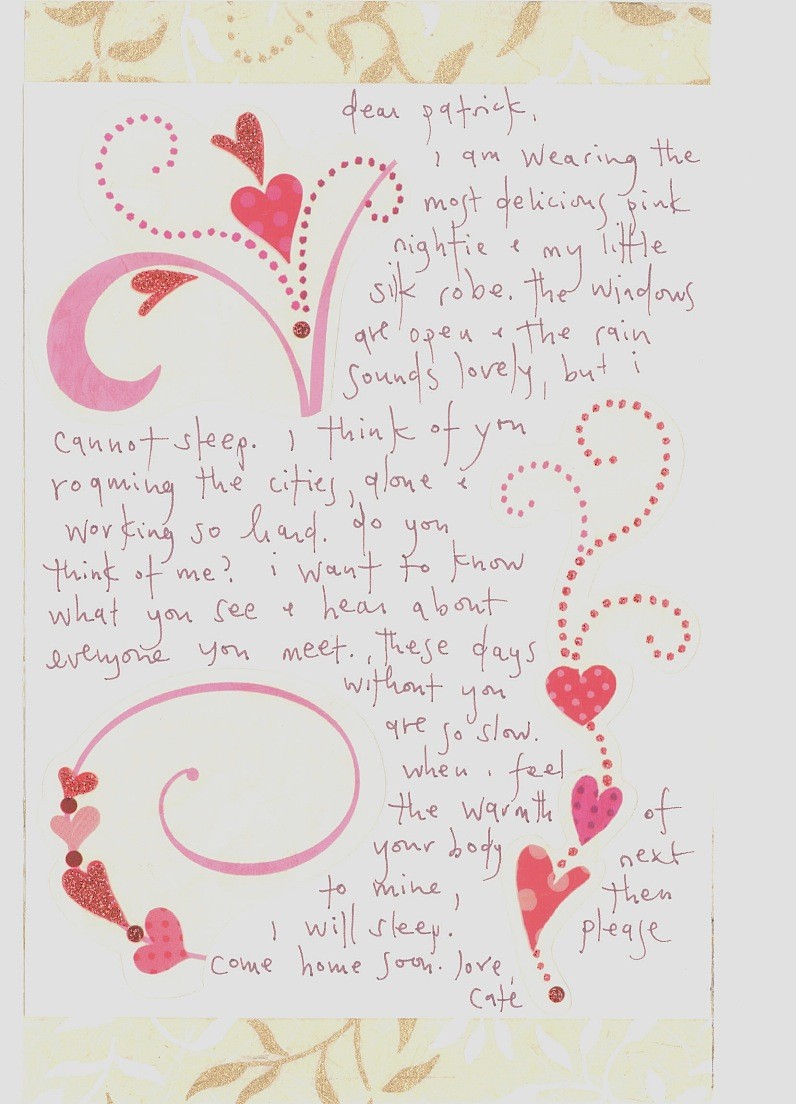 dear patrick,
i am wearing the
most delicious pink
nightie & my little
silk robe. the windows
are open & the rain
sounds lovely, but i
cannot sleep. i think of you
roaming the cities, alone &
working so hard. do you
think of me? i want to know
what you see & hear about
everyone you meet. these days
without you
are so slow.
when i feel
the warmth of
your body next
to mine, then
i will sleep. please
come home soon. love,
café